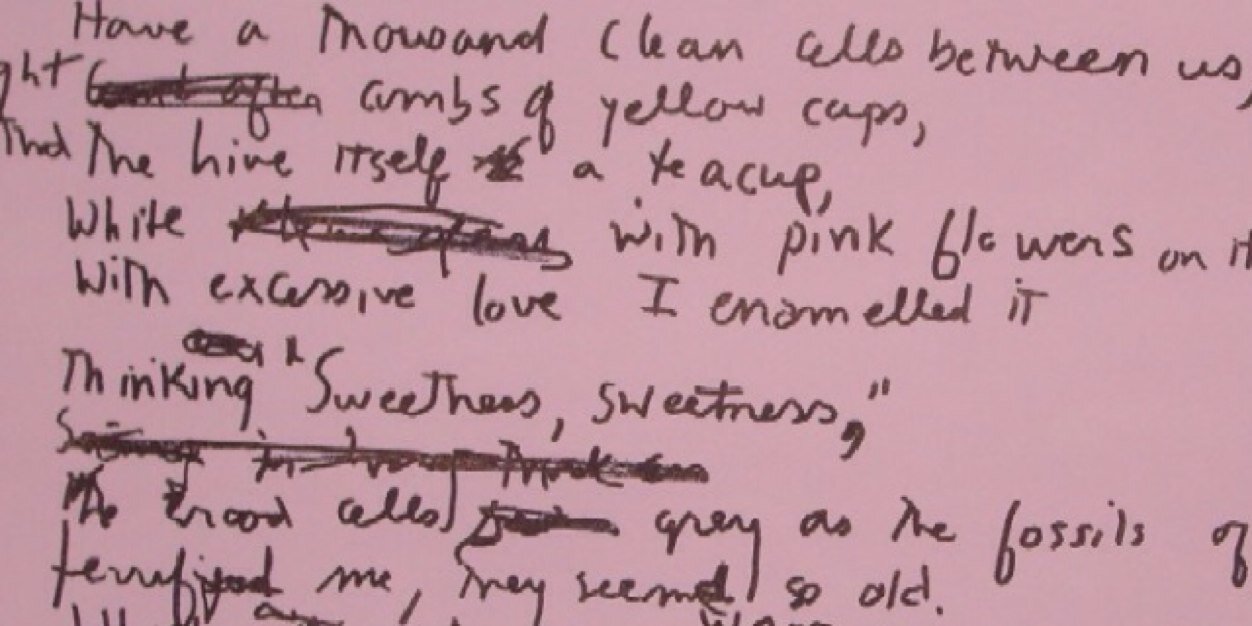 Have a thousand clean cells between us,
ght combs of yellow cups,
And the hive itself a teacup,
White with pink flowers on it
With excessive love I enamelled it
Thinking "Sweetness, sweetness,"
The brood cells grey as the fossils of
terrified me, they seemed so old.